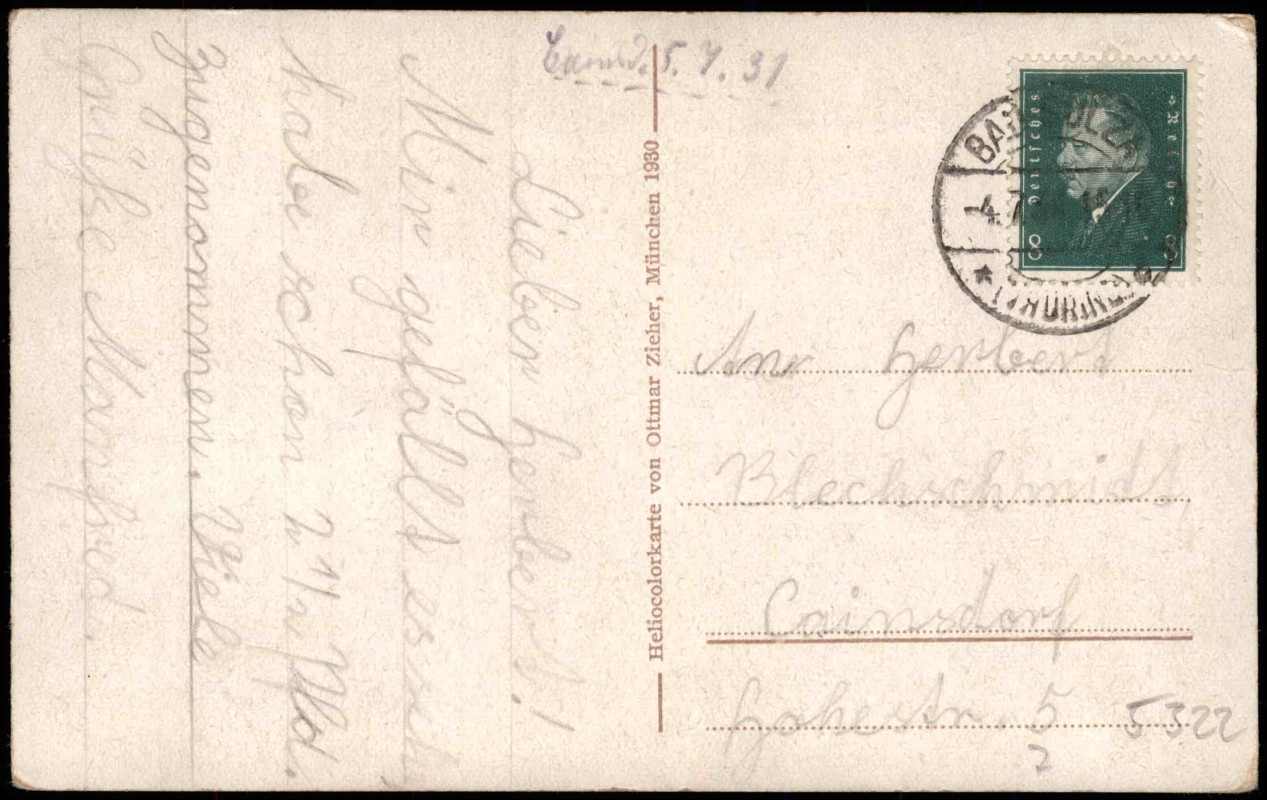 Cainsd. 5. 7. 31
Lieber Herbert!
Mir gefällts
habe schon 2 1/2 Pfd.
zugenommen. Viele
Grüße Manfred.
Heliocolorkarte von Ottmar Zieher, München 1930
Deutsches Reich
8 8
BAD SULZA
4.7.
(THÜRINGEN)
An Herbert
Blechschmidt,
Cainsdorf
Hohestr. 5
5322
2